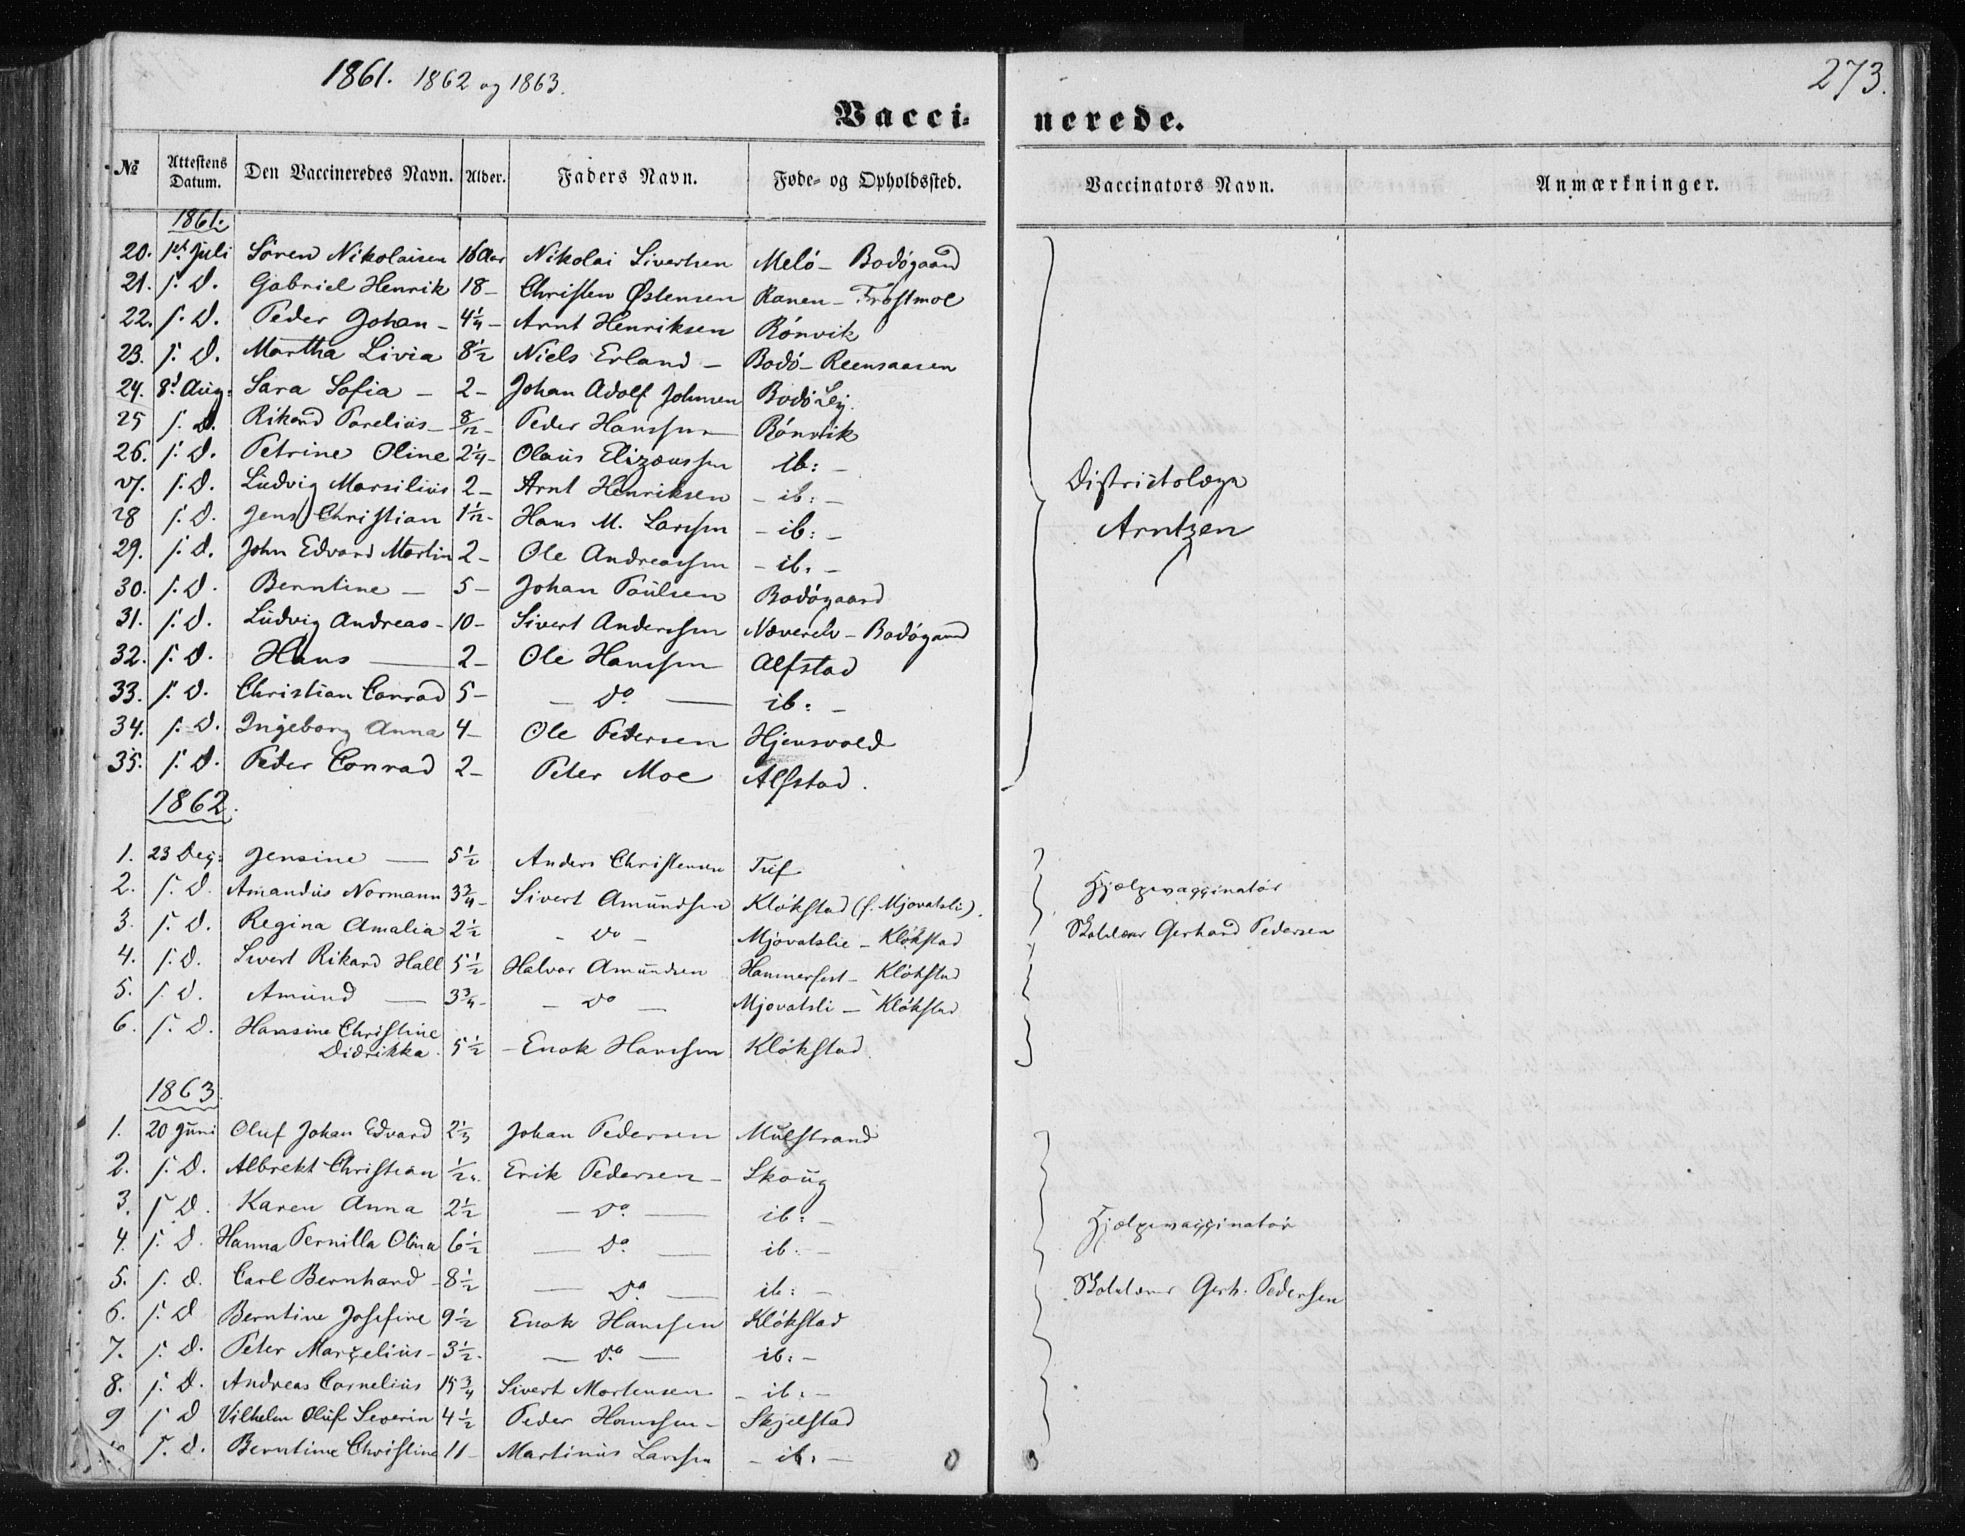 1861. 1862 og 1863.
273.
Vacci- nerede.
№ Attestens Datum. Den Vaccineredes Navn. Alder. Faders Navn. Føde- og Opholdssted. Vaccinators Navn. Anmærkninger.
1861.
20. 1st Juli Sören Nikolaisen 16 Aar Nikolai Sivertsen Melö - Bodögaard
21. s. D. Gabriel Henrik 18 - Christen Østensen Ranen - Frostmoe
22. s. D. Peder Johan - 4 1/4 - Arnt Henriksen Rönvik
23. s. D. Martha Livia 8 1/2 Niels Erland - Bodö - Reensaasen
24. 8d Aug: Sara Sofia - 2 - Johan Adolf Johnsen Bodö
25 s. D. Rikard Parelius - 8/12 - Peder Hanssen Rönvik
26. s. D. Petrine Oline 2 1/4 - Olaus Elizæussen ib: -
27. s. D. Ludvig Marsilius 2 - Arnt Henriksen - ib: -
28 s. D. Jens Christian 1 1/12 - Hans M. Larssen - ib: -
29. s. D. John Edvard Martin 2 - Ole Andreassen - ib. -
30. s. D. Berntine - 5 - Johan Poulsen Bodögaard
31. s. D. Ludvig Andreas - 10 - Sivert Anderssen Næverelv - Bodögaard
32. s. D. Hans - 2 - Ole Hanssen Alfstad
33. s. D. Christian Conrad 5 - - Do - ib: -
34. s. D. Ingeborg Anna 4 - Ole Pedersen Hjensvold
35. s. D. Peder Conrad 2 - Peter Moe Alfstad.
Districtslæge
Arntzen
1862.
1. 23 Dez: Jensine - 5 1/2 Anders Christensen Tuf
2. s. D. Amandus Normann 3 3/4 - Sivert Amundsen Klökstad (f. Mjovatsli).
3. s. D. Regina Amalia 2 1/2 - Do - Mjovatslie - Klökstad
4. s. D. Sivert Rikard Hall 5 1/2 Halvor Amundsen Hammerfest - Klökstad
5. s. D. Amund - 3 3/4 - - Do - Mjovatsli - Klökstad
6. s. D. Hansine Christine
Didrikka. 5 1/2 - Enok Hanssen Klökstad.
Hjælpevaccinatör
Skolelærer Gerhard Pedersen
1863.
1. 20 Juni Oluf Johan Edvard 2 1/3 Johan Pedersen Mulstrand
2. s. D. Albrekt Christian 1/2. Erik Pedersen - Skoug
3. s. D. Karen Anna 2 1/2 - Do. - ib: -
4. s. D. Hanna Pernilla Olina 6 1/2 - Do. - ib. -
5. s. D. Carl Bernhard - 8 1/2 - Do. - ib: -
6. s. D Berntine Josefine 9 1/2 Enok Hanssen Klökstad
7. s. D. Peter Marcelius - 3 1/2. - Do. - ib: -
8. s. D. Andreas Cornelius 15 3/4 Sivert Mortensen - ib. -
9 s. D Vilhelm Oluf Severin 4 1/2 Peder Hanssen - Skjelstad
s. D. Berntine Christine 11 - Martinus Larssen - ib. -
Hjælpevaccinatör
Skolelærer Gerh. Pedersen